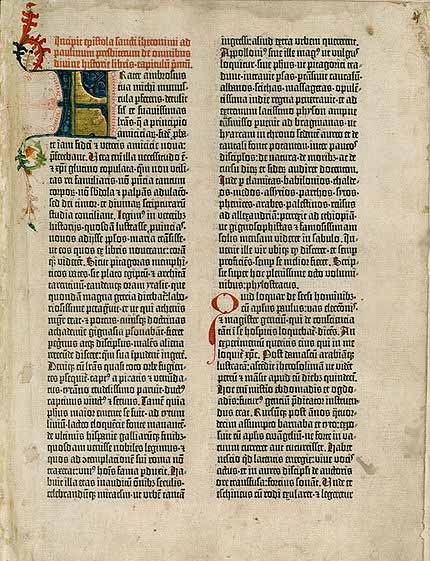 Incipit epistola sancti iheronimi ad
paulinum presbiterum de omnibus
divine historie libris. capitulū pͥmū.
Frater ambrosius
tua michi munus-
cula pferens. detulit
sil et suavissimas
lrās. q̄ a principio
amiciciaꝝ. fidē pba-
te iam fidei ⁊ veteris amicicie nova
pferebant. Vera enī illa necessitudo ē.
⁊ xp̄i glutino copulata. qm̄ non utili-
tas rei familiaris. nō pn̄tia tantum
corpoꝝ. nō sbdola ⁊ palpās adulaco.
sed dei timor. et divinaꝝ scripturarū
studia conciliant. Legim⁹ in veteribs
historijs. quosdā lustrasse. puincias.
novos adijsse pplos. maria trāsisse.
ut eos quos ex libris noverant: corā
qꝫ viderēt. Sicut pitagoras memphi-
ticos vates. sic plato egiptū. ⁊ architā
tarentinū. eandemqꝫ oram ytalie. que
quondā magna grecia dicebat̄: labo-
riosissime peragͣvit. et ut qui athenis
mgr̄ erat. ⁊ potens. cuiusqꝫ doctrinas
achademie gignasia psonabāt. fieret
peginus atqꝫ discipulus. malēs aliena
verecūde discere: qm̄ sua īpudent̄ ingerē.
Deniqꝫ cū lrās quasi toto orbe fugien-
tes pseqͥtur. capt⁹ a piratis ⁊ venūda-
tus. tyrāno crudelissimo paruit. duct⁹
captivus vinct⁹ ⁊ servus. Tamē quia
phūs maior emente se fuit. ad tytum
liviū. lacteo eloquētie fonte manante.
de ultimis hispanie galliarūqꝫ finibs.
quosdam venisse nobiles legimus. ⁊
quos ad cōtemplacionē sui roma nō
traxerat: uni⁹ hoīs fama pduxit. Ha-
buit illa etas inauditū oīnibs seculis.
celebrandūqꝫ miraculū. ut urbē tantā
ingressi: aliud extra urbem quererent.
Apolloni⁹ sive ille mag⁹ ut vulgus
loquitur. sive phūs. ut pitagorici tra-
dunt. intravit psas. ptrāsivit caucasū.
albanos. scithas. massagetas. opulē-
tissima indie regna penetravit. et ad
extremum latissimo physon ampne
trāsmisso puenit ad bragmanas. ut
hyarcam in throno sedētē aureo et de
tantali fonte potantem. inter paucos
discipulos: de natura. de moribs. ac de
cursu dieꝝ et siderū audiret docentem.
Inde p elamitas. babilonios. chalde-
os. medos. assyrios. parthos. syros.
phenices. arabes. palestinos. reversus
ad allexandriā: perrexit ad ethiopiā.
ut gignosophistas ⁊ famosissimam so-
lis mensam videret in sabulo. In-
venit ille vir ubiqꝫ qd disceret. et semp
proficiēs. semp se melior fieret. Scrip-
sit super hoc plenissime octo volumi-
nibus: phylostratus.
Quid loquar de secli hominibs.
cū aplūs paulus: vas electōis.
⁊ magister gencium. qui de consciencia
tāti ī se hospitis loquebat̄ dicēs. An
experimentū queritis eius qui in me
loquit̄ xp̄c. Post damascū arabiāqꝫ
lustratā: ascēdit iherosolimā ut videt
petrū ⁊ māsit apud eū diebs quindeci.
Hoc enī misterio ebdomadis et ogdo-
adis: futur⁹ genciū pdicator instruen-
dus erat. Rursūqꝫ post ānos q̄tuor-
decim assumpto barnaba et tyto: expo-
suit cū aplīs evāgeliū. ne forte in va-
cuum curreret aut cucurrisset. Habet
nescio qd latentis energie: vive vocis
actus. et in aures discipli de auctoris
ore transfusa: forcius sonat. Unde et
eschineus cū rodi exularet. ⁊ legeretur